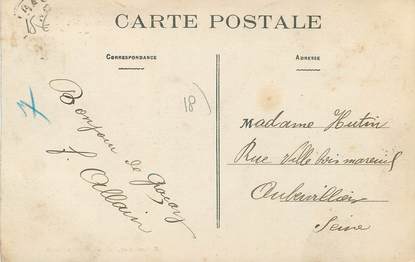 CARTE POSTALE
CORRESPONDANCE
ADRESSE
18
Bonjour de
J. Allain
Madame Hutin
Rue Ville bois mareuil
Aubervilliers
Seine